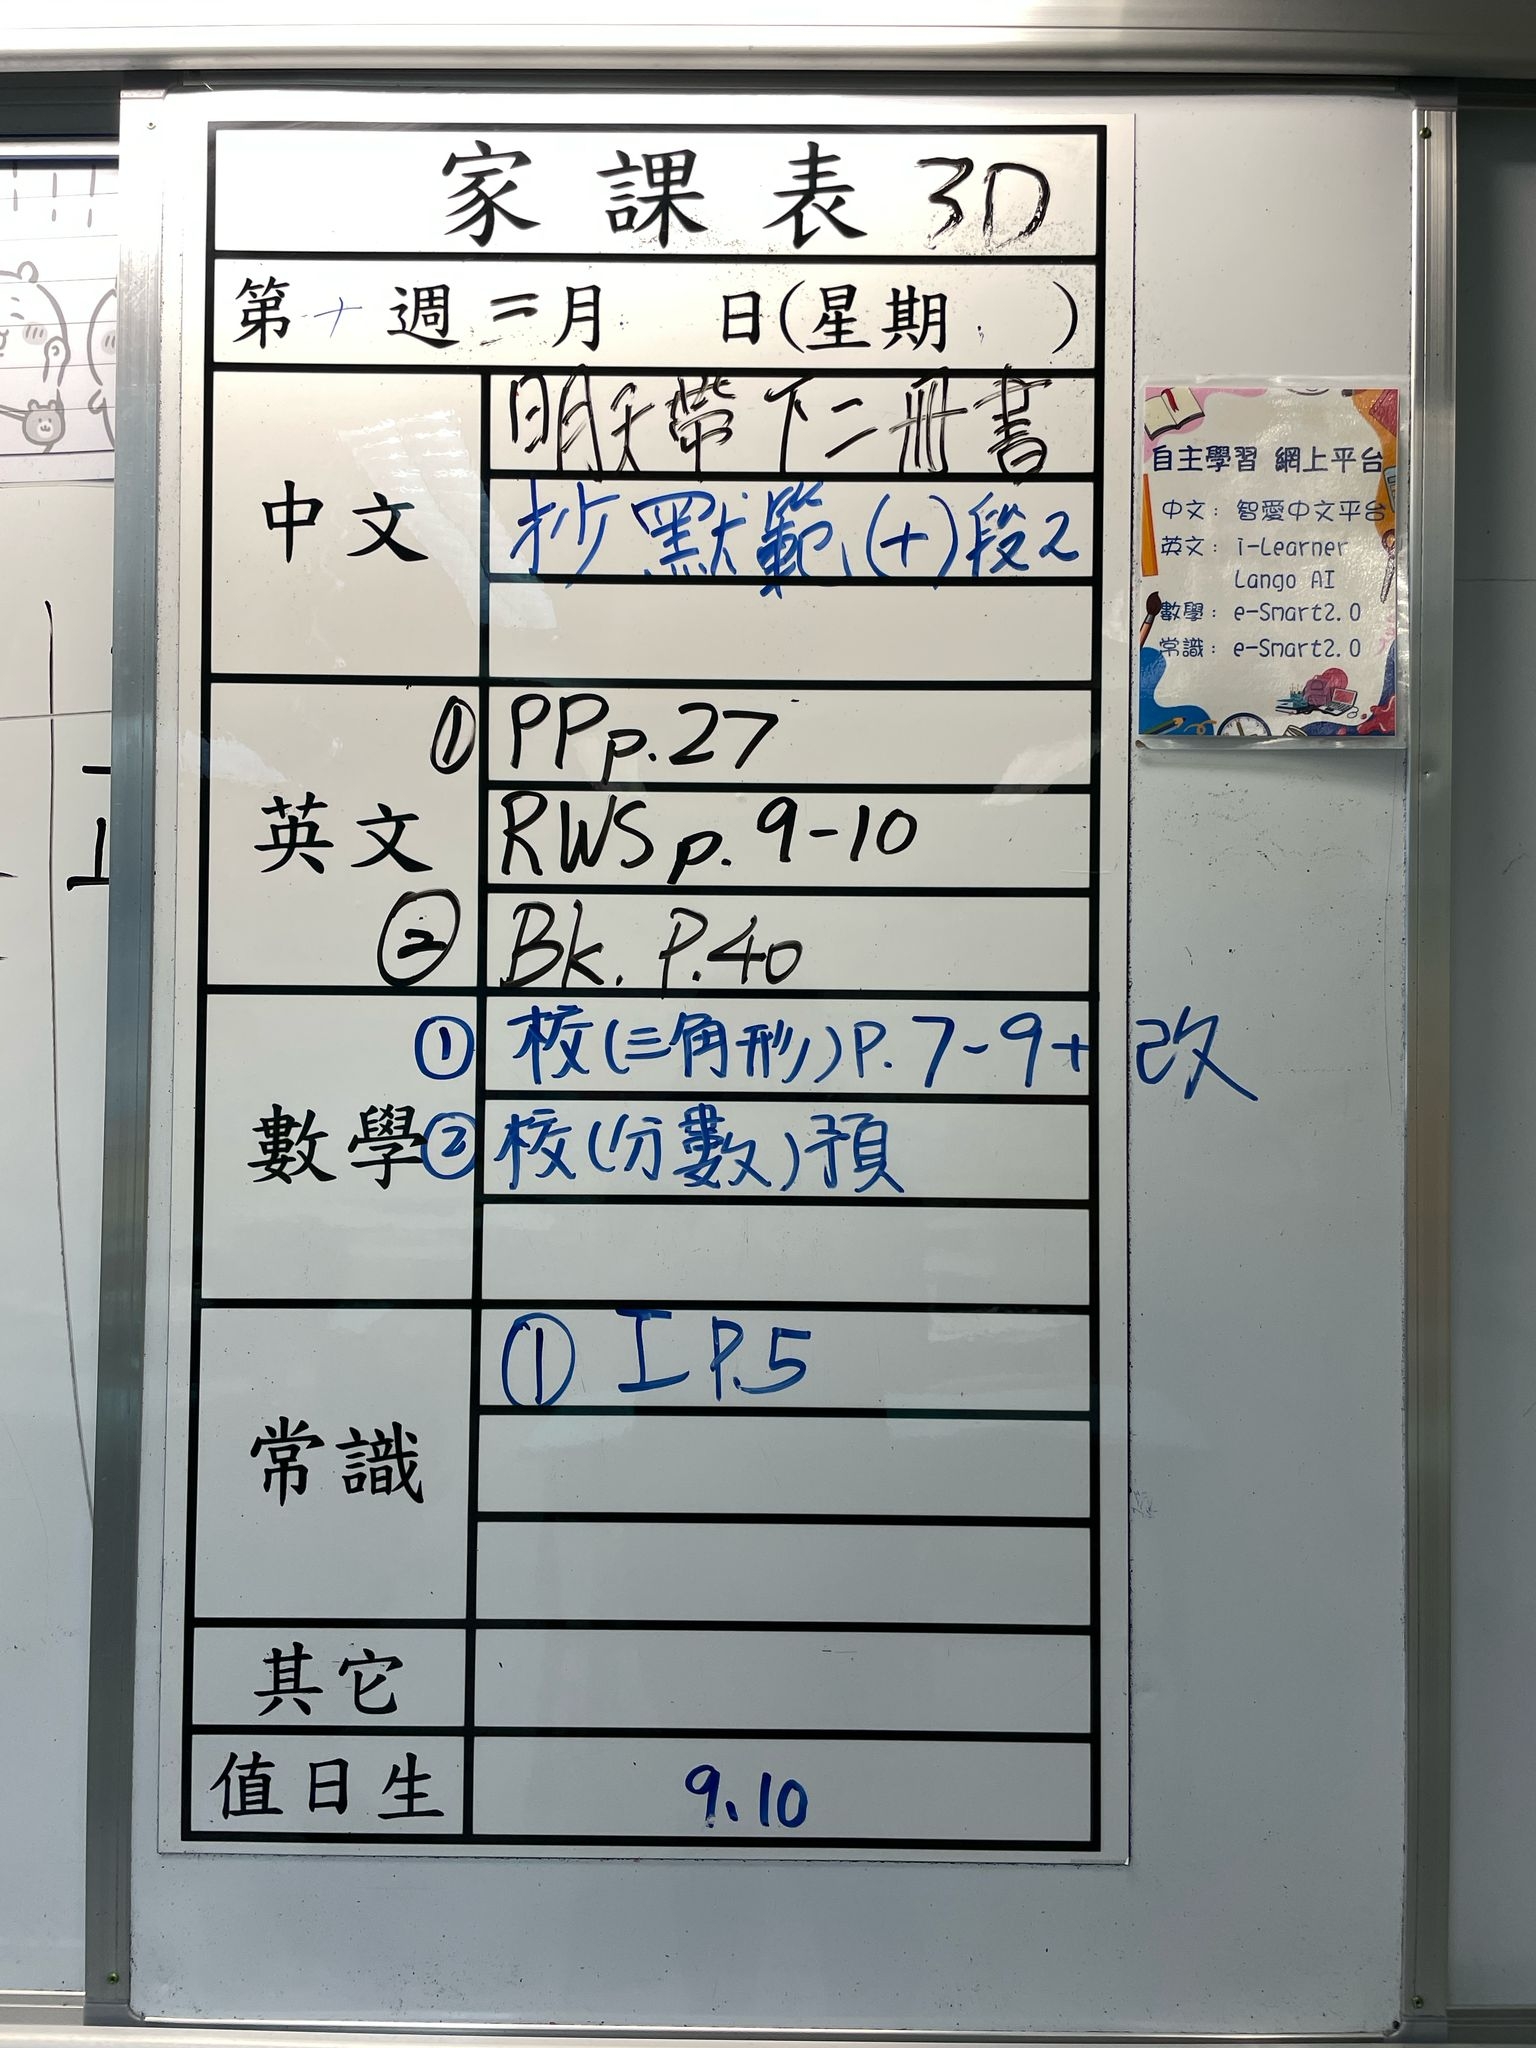 家課表 3D
第十週二月 日(星期 )
中文
明天帶下二冊書
抄默範(十)段2
英文
① PP p.27
RWS p.9-10
② Bk. P.40
數學
① 校(三角形)P.7-9+改
② 校(分數)預
常識
① 工 P.5
其它
值日生
9.10
自主學習 網上平台
中文: 智愛中文平台
英文: i-Learner
Lango AI
數學: e-Smart2.0
常識: e-Smart2.0